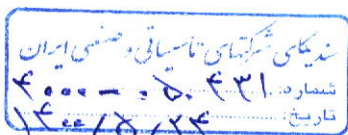 سندیکای شرکتهای تأسیساتی و صنعتی ایران
شماره: ۴۰۰۰-۰۵۰۴۳۱
تاریخ: ۱۴۰۰/۸/۲۴